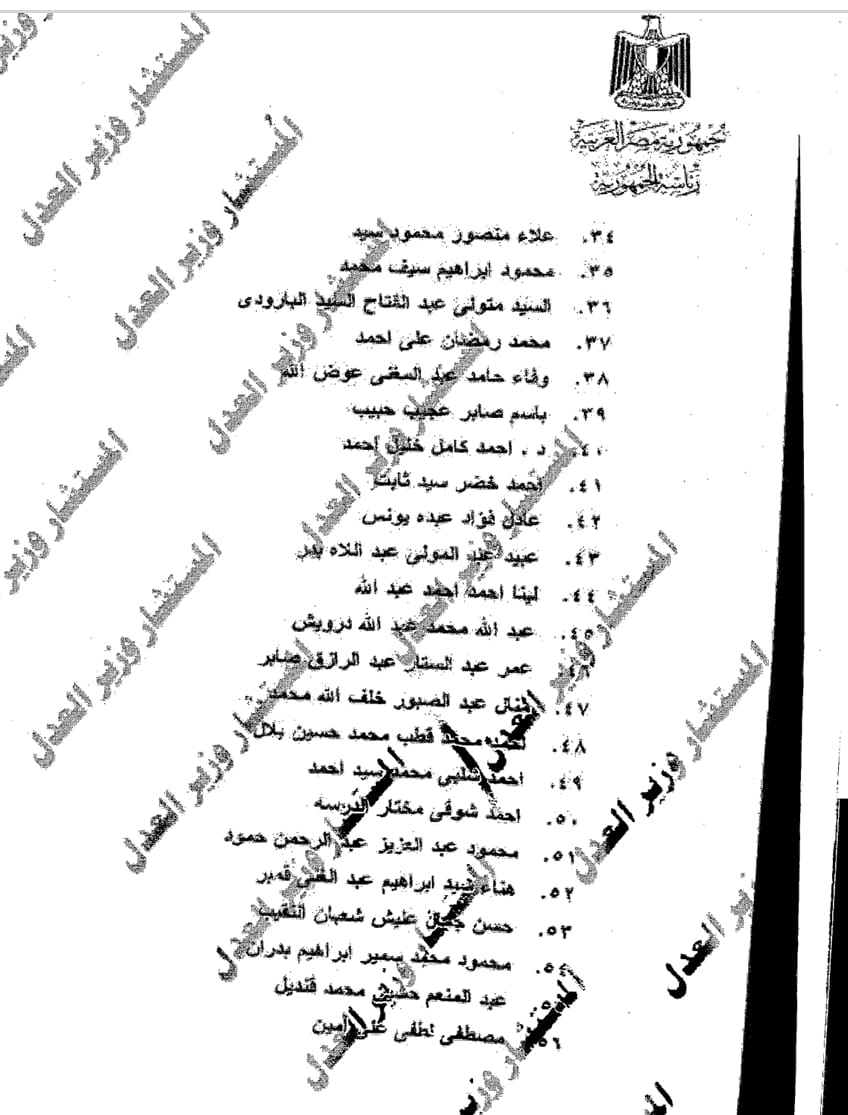 جمهورية مصر العربية
رئاسة الجمهورية
٣٤. علاء منصور محمود سيد
٣٥. محمود ابراهيم سيف محمد
٣٦. السيد متولى عبد الفتاح السيد البارودى
٣٧. محمد رمضان على احمد
٣٨. وفاء حامد عبد السغنى عوض الله
٣٩. باسم صابر عجيب حبيب
٤٠. د . احمد كامل خليل احمد
٤١. احمد خضر سيد ثابت
٤٢. عادل فؤاد عبده يونس
٤٣. عبيد عبد المولى عبد اللاه بدر
٤٤. لينا احمد احمد عبد الله
٤٥. عبد الله محمد عبد الله درويش
٤٦. عمر عبد الستار عبد الرازق صابر
٤٧. منال عبد الصبور خلف الله محمد
٤٨. احمد محمد قطب محمد حسين بلال
٤٩. احمد شلبى محمد سيد احمد
٥٠. احمد شوقى مختار
٥١. محمود عبد العزيز عبد الرحمن حمود
٥٢. هناء سيد ابراهيم عبد الغنى قمبر
٥٣. حسن جمال عليش شعبان النقيب
٥٤. محمود محمد سمير ابراهيم بدران
٥٥. عبد المنعم حسينى محمد قنديل
٥٦. مصطفى لطفى على امين
المستشار وزير العدل